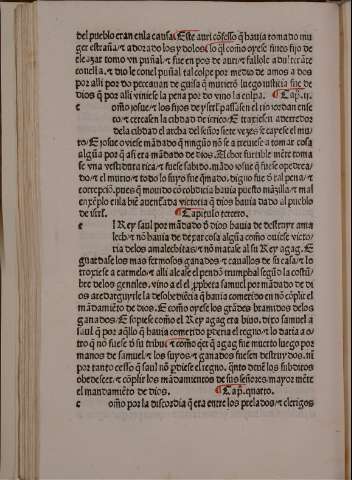 del pueblo eran enla causa Este auri cõfesso q̃ hauia tomado mu
ger estraña ⁊ adorado los ydolos lo ql̃ como oyese finees fijo de
eleazar tomo vn puñal ⁊ fue en pos de auri ⁊ fallole adulterãte
conella ⁊ dio le conel puñal tal colpe por medio de amos a dos
por alli por do peccauan de guisa q̃ murierõ luego iusticia fue de
dios q̃ por alli viniese la pena por do vino la culpa. Cap. ij.
como josue ⁊ los fijos de ysrl̃ passasen el rio iordan ense
⁊ cercasen la cibdad de iherico ⁊ traxiesen aderredor
dela cibdad el archa del señor siete vezes se cayese el mu
ro ⁊ josue ouiese mãdado q̃ ningũo nõ se atreuiese a tomar cosa
algũa por q̃ asi era mãdado de dios Achor furtible mẽte toma
se vna vestidura rica ⁊ fuese sabido. mãdo josue q̃ fuese apedrea
do ⁊ el muriо ⁊ todo lo suyo fue q̃mado. digno fue õ tal pena ⁊
correpciõ. pues q̃ mouido cõ cobdicia hauia puesto mãzilla ⁊ mal
exẽplo enla biẽ auenẽtada victoria q̃ dios hauia dado al pueblo
de isrl̃. Capitulo tercero.
el Rey saul por mãdado õ dios hauia de destruyr ama
lech ⁊ nõ hauia de deparcosa algũa como ouiese victo
ria delos amalechitas ⁊ nõ matase al su Rey agag. E
guardase los mas fermosos ganados ⁊ cauallos de su casa ⁊ lo
troxiese a carmelo ⁊ alli alçase el pendõ triumphal segũd la costũ
bre delos gentiles. vino a el el ꝓpheta samuel por mãdado de di
os a redarguyrle la desobediẽcia q̃ hauia cometido en nõ cõplir el
mandamiẽto de dios. E como oyese los grãdes bramidos delos
ganados ⁊ sopiese como el Rey agag era biuo. dixo samuel a
saul q̃ por aq̃llo q̃ hauia cometido ꝑderia el regno ⁊ lo daria a o
tro q̃ nõ fuese õ su tribu ⁊ como q̃er q̃ agag fue muerto luego por
manos de samuel ⁊ los suyos ⁊ ganados fuesen destruydos. nĩ
por tanto cesso q̃ saul nõ ꝑdiese el regno. q̃nto deuẽ los subditos
obedescer ⁊ cõplir los mãdamientos de sus señores mayor mẽte
el mandamiẽto de dios. Cap. quarto.
como por la discordia q̃ era entre los prelados ⁊ clerigos